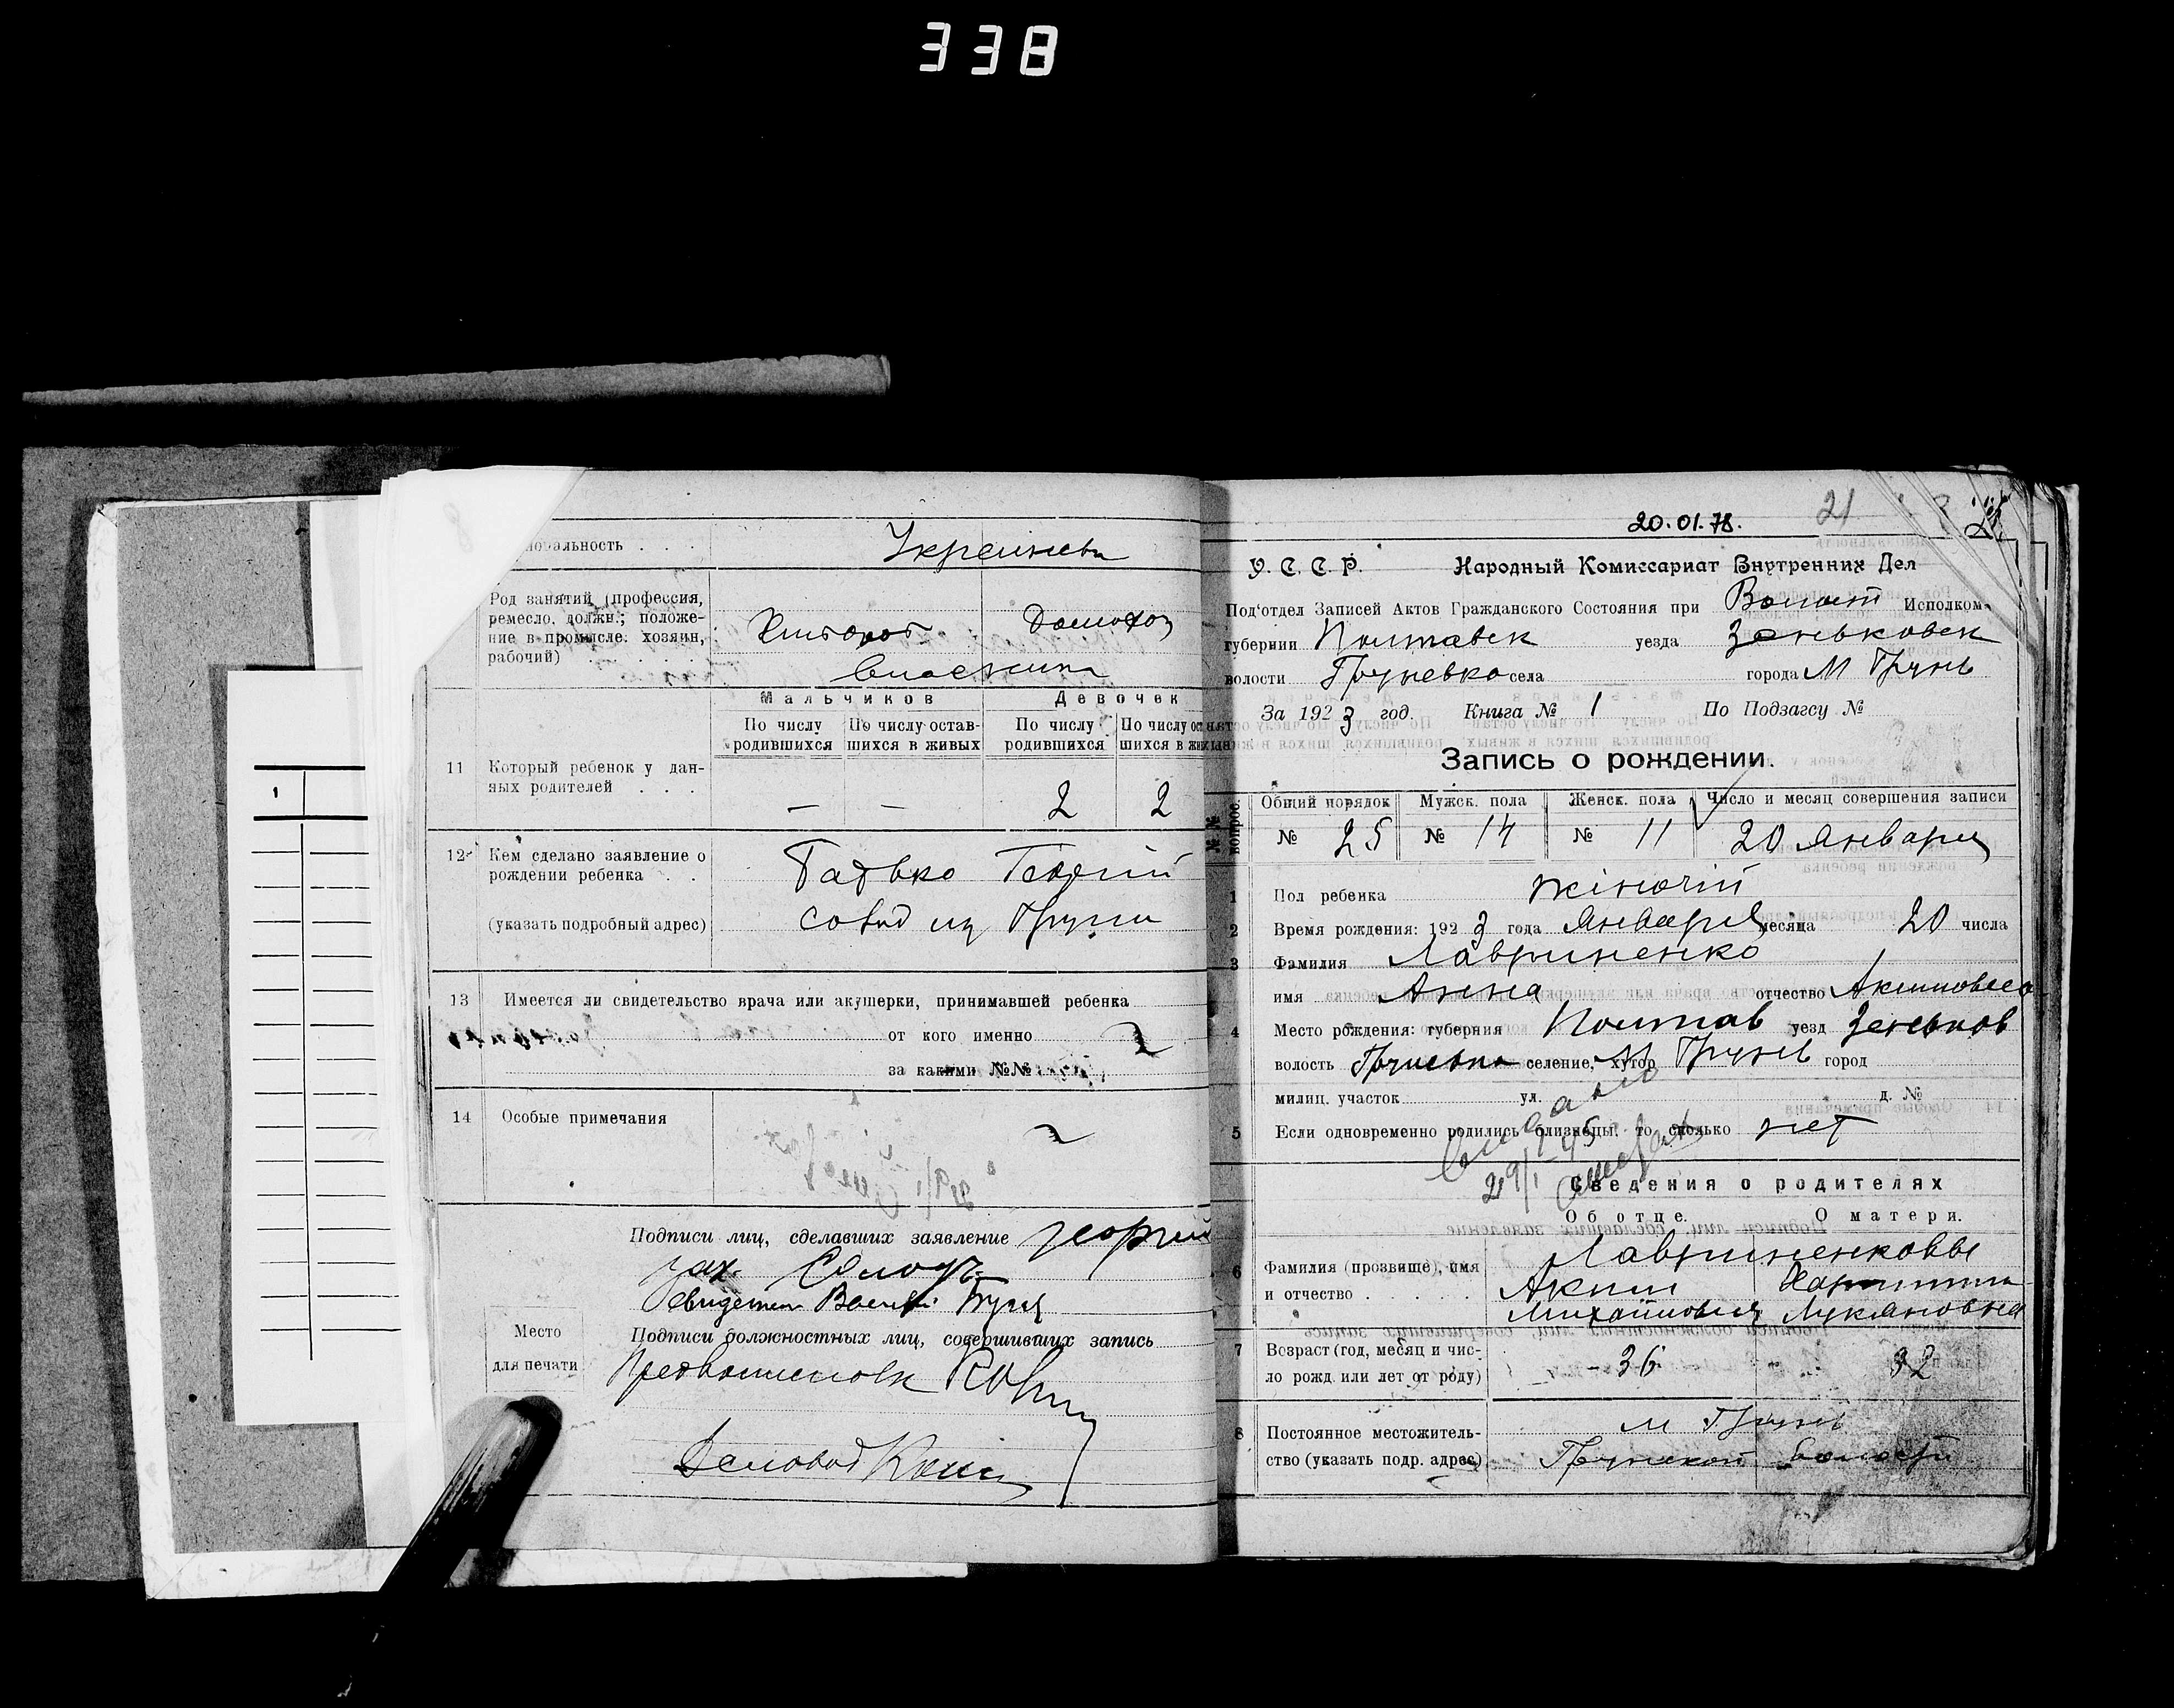 338
Украинева
Род занятий (профессия,
ремесло, должн.; положе-
ние в промысле: хозяин,
рабочий) . . . . .
Хлебороб
Домохоз
Мальчиков
Девочек
По числу родившихся
По числу оставшихся в живых
По числу родившихся
11 Который ребенок у дан-
ных родителей . . .
— — 2 2
12 Кем сделано заявление о
рождении ребенка . .
(указать подробный адрес)
Батько Георгий
из Груни
13 Имеется ли свидетельство врача или акушерки, принимавшей ребенка
от кого именно
за какими №№
14 Особые примечания
Подписи лиц, сделавших заявление Георгий
Место
для печати
Подписи должностных лиц, совершивших запись
20.01.78.
21
У. С. С. Р. Народный Комиссариат Внутренних Дел
Под'отдел Записей Актов Гражданского Состояния при Волост Исполком
губернии Полтавск уезда Зеньковск
волости Груневко села города М Грунь
За 1923 год. Книга № 1 По Подзагсу №
Запись о рождении.
№№ вопрос.
Общий порядок Мужск. пола Женск. пола Число и месяц совершения записи
№ 25 № 14 № 11 20 Января
1 Пол ребенка жіночій
2 Время рождения: 1923 года Января месяца 20 числа
3 Фамилия Лавриненко
имя Анна отчество Акимовна
4 Место рождения: губерния Полтав уезд Зеньков
волость селение, хутор М Грунь город
милиц. участок ул. д. №
5 Если одновременно родились близнецы, то сколько нет
29/I-45
Сведения о родителях
Об отце. О матери.
Лавриненковы
6 Фамилия (прозвище), имя
и отчество . . . .
Аким
Михайлович Лукяновна
7 Возраст (год, месяц и чис-
ло рожд. или лет от роду)
36 32
8 Постоянное местожитель-
ство (указать подр. адрес)
м Грунь
Грунской Волости
1